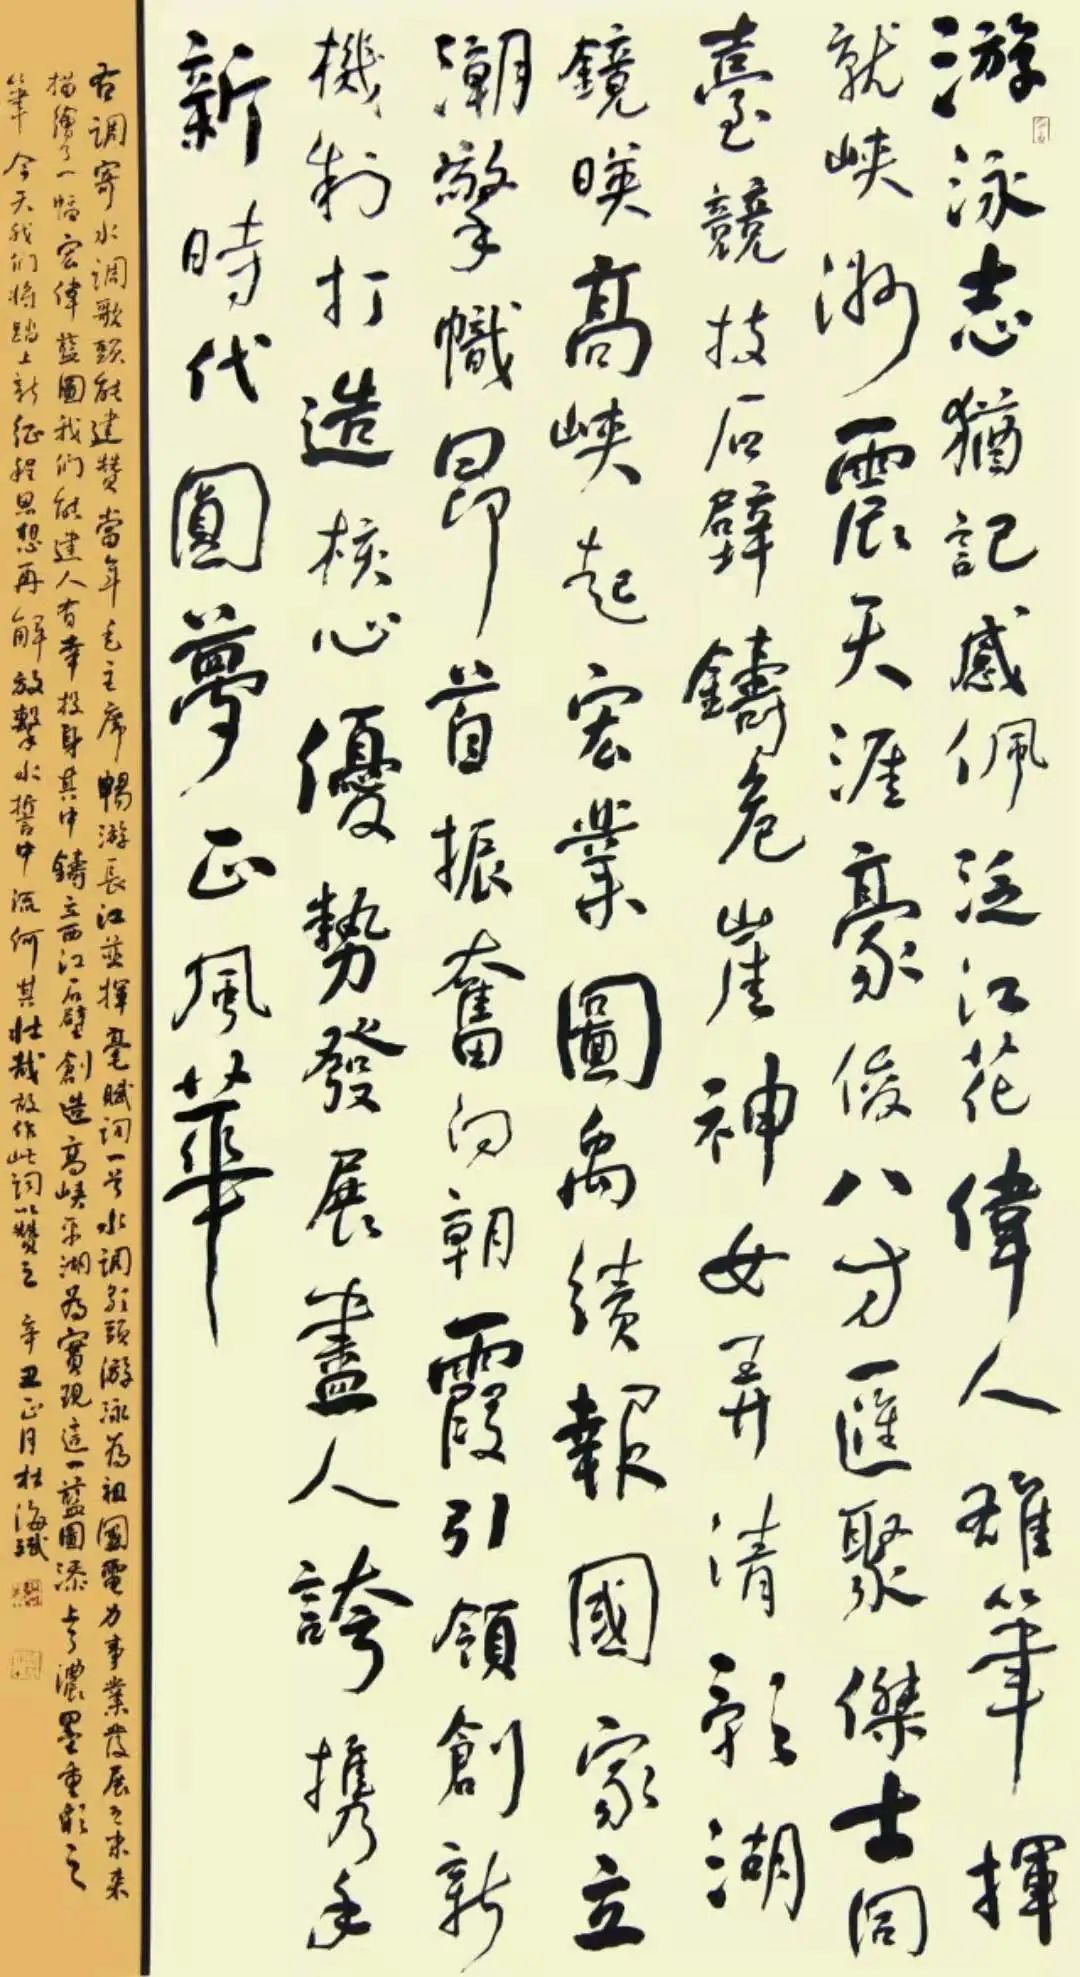 游泳志猶記感佩泛江花偉人雄筆揮
就峽洲震天涯豪俊八方匯聚傑士同
臺競技石壁鑄危崖神女弄清影湖
鏡映高峽起宏業圖禹績報國家立
潮擎幟昂首振奮向朝霞引領創新
機制打造核心優勢發展盡人誇携手
新時代圓夢正風華
右調寄水調歌頭能建贊當年毛主席暢游長江並揮毫賦詞一首水調歌頭游泳為祖國電力事業發展之未来
描繪了一幅宏偉藍圖我们能建人有幸投身其中鑄立西江石壁創造高峽平湖為實現這一藍圖添上了濃墨重彩之
筆今天我们將踏上新征程思想再解放擊水誓中流何其壯哉故作此詞以贊之辛丑正月杜海